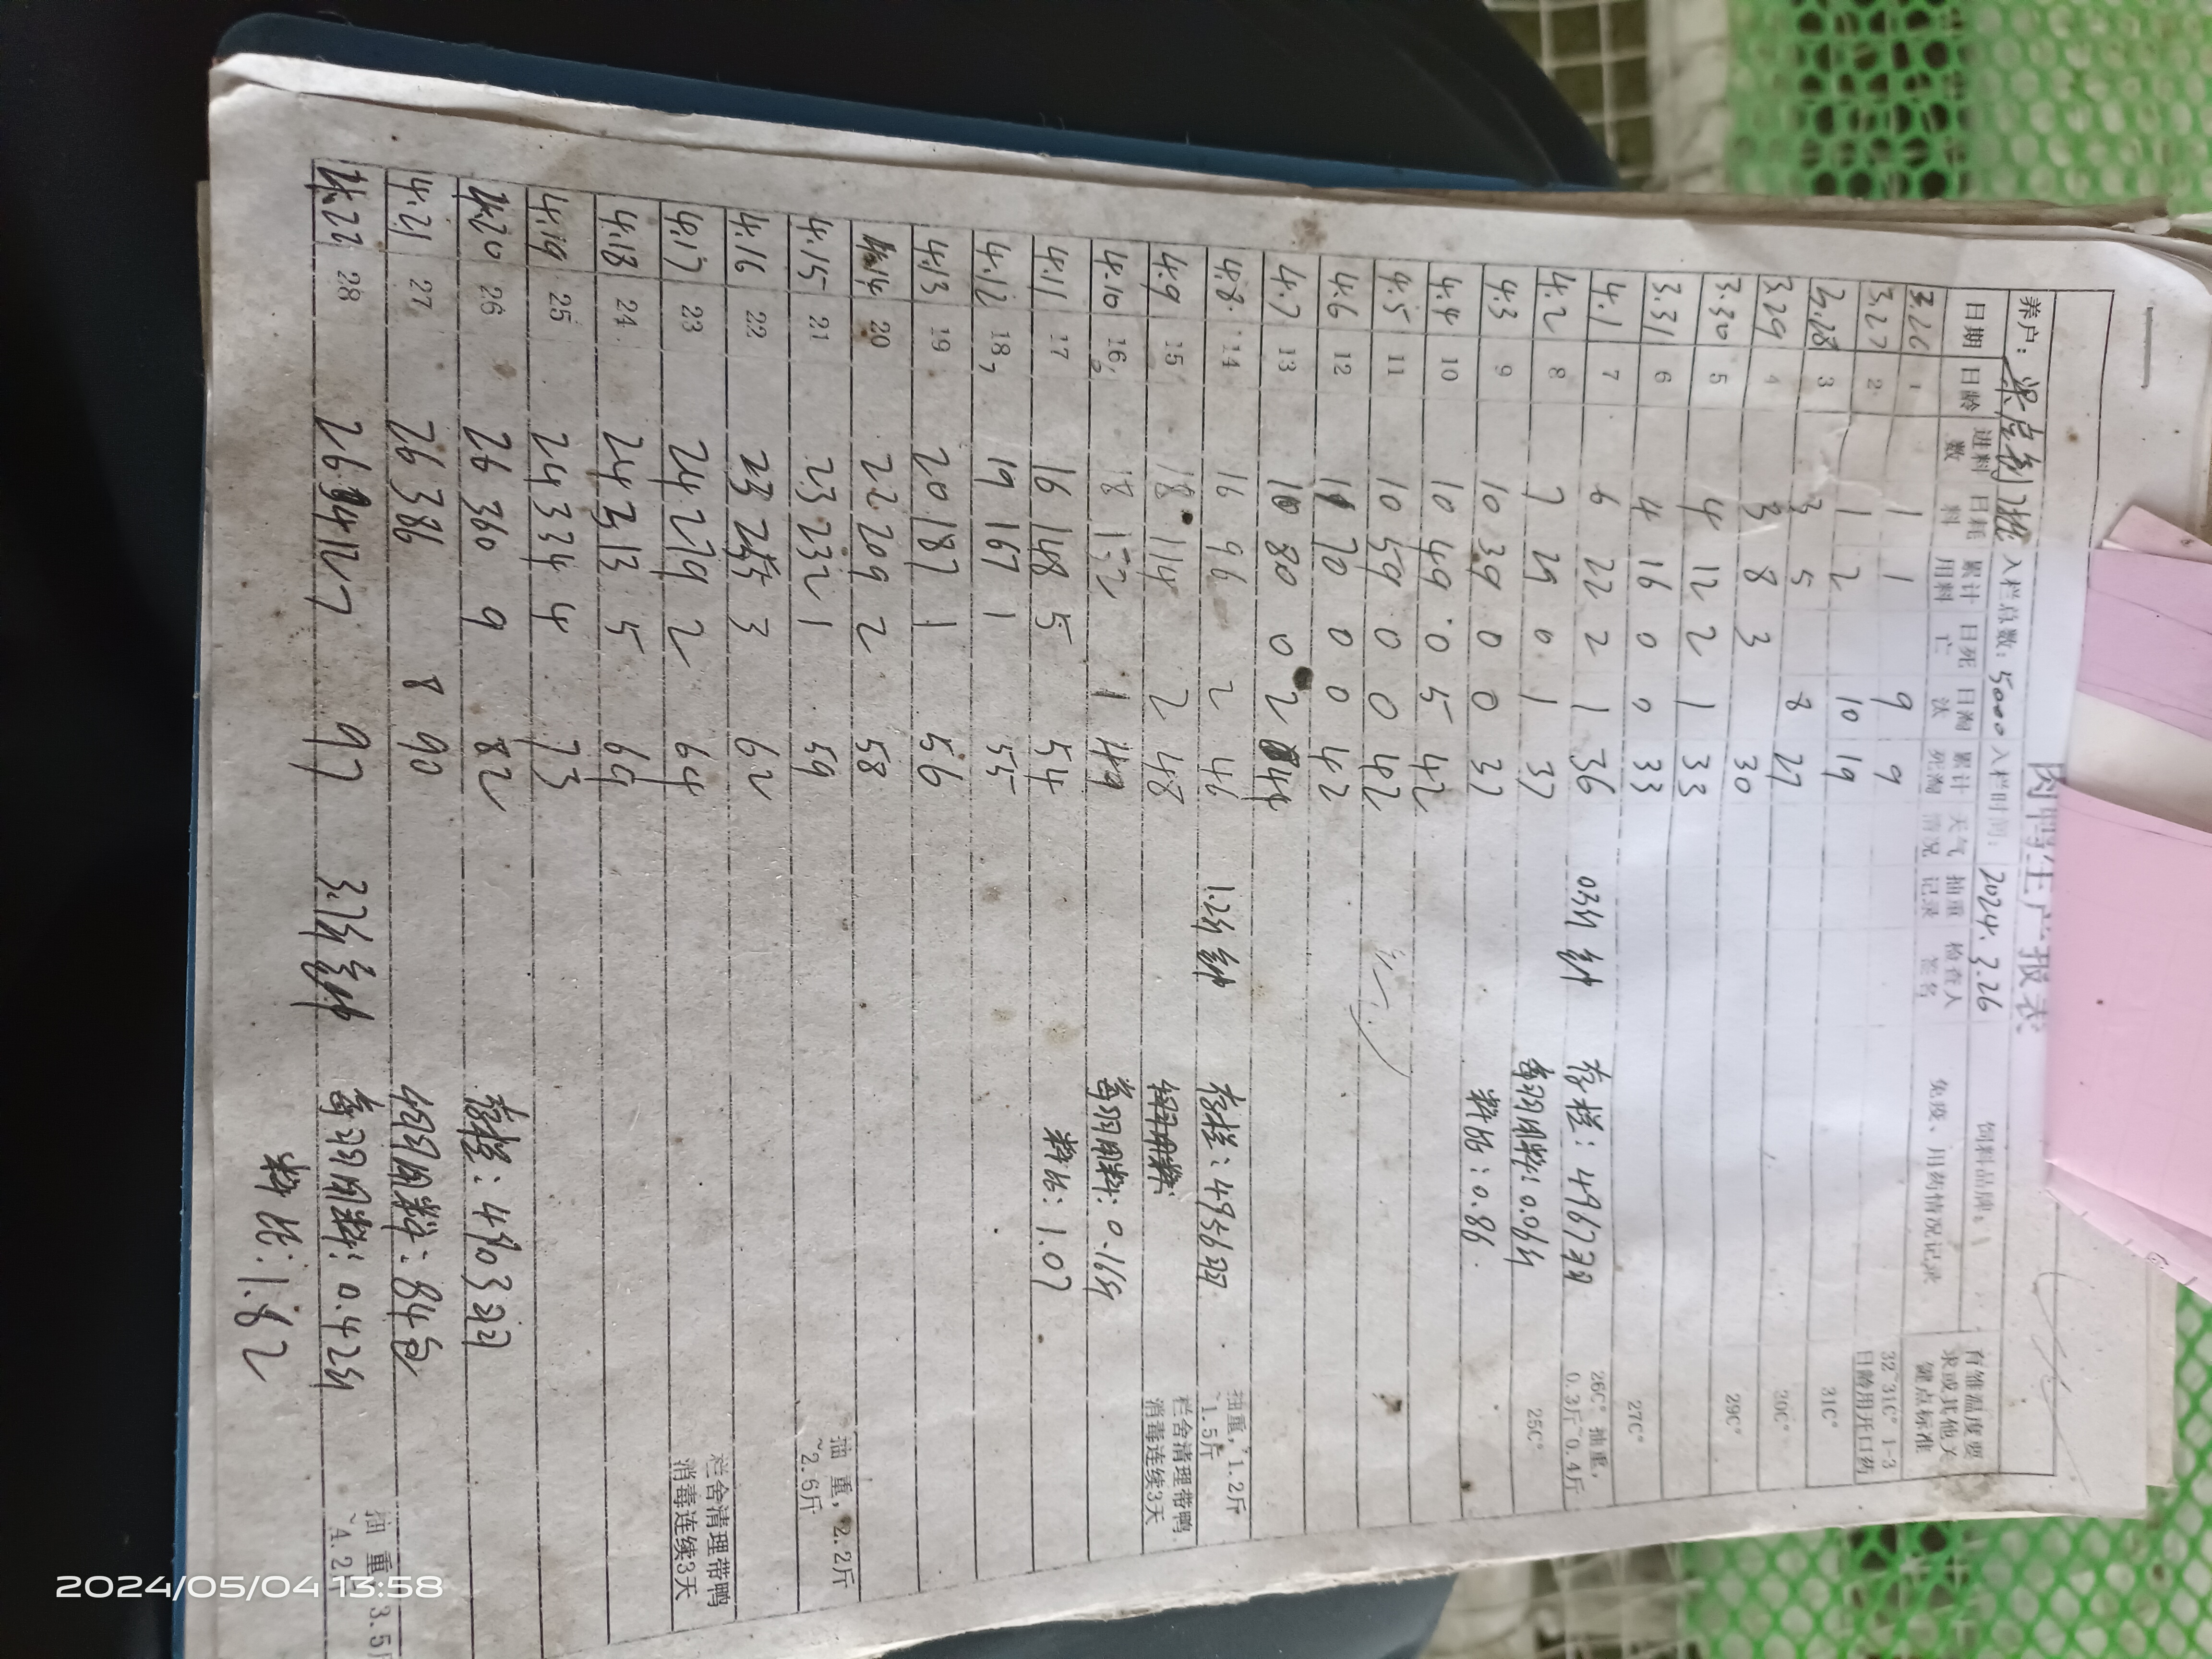 肉鸭生产报表
养户： 入栏总数：5000 入栏时间：2024.3.26 饲料品牌：
日期 日龄 进料数 日耗料 累计用料 日死亡 日淘汰 累计死淘 天气情况 抽重记录 检查人签名 免疫、用药情况记录 育雏温度要求或其他关键点标准
3.26 1 1 1 9 9 32~31C° 1-3日龄用开口药
3.27 2 1 2 10 19
3.28 3 3 5 8 27 31C°
3.29 4 3 8 3 30 30C°
3.30 5 4 12 2 1 33 29C°
3.31 6 4 16 0 0 33 27C°
4.1 7 6 22 2 1 36 存栏：4967羽 26C° 抽重，0.3斤~0.4斤
4.2 8 7 29 0 1 37 每羽用料：0.06斤 25C°
4.3 9 10 39 0 0 37 料比：0.86
4.4 10 10 49 0 5 42
4.5 11 10 59 0 0 42
4.6 12 11 70 0 0 42
4.7 13 10 80 0 2 44
4.8 14 16 96 2 46 存栏：4956羽 抽重，1.2斤~1.5斤
4.9 15 18 114 2 48 栏舍清理带鸭消毒连续3天
4.10 16 18 132 1 49 每羽用料：0.16斤
4.11 17 16 148 5 54 料比：1.07
4.12 18 19 167 1 55
4.13 19 20 187 1 56
4.14 20 22 209 2 58
4.15 21 23 232 1 59 抽重，2.2斤~2.6斤
4.16 22 23 255 3 62
4.17 23 24 279 2 64 栏舍清理带鸭消毒连续3天
4.18 24 24 313 5 69
4.19 25 24 334 4 73
4.20 26 26 360 9 82 存栏：4903羽
4.21 27 26 386 8 90 用料：84包
4.22 28 26 412 7 97 每羽用料：0.42斤 抽重，3.5斤~4.2斤
料比：1.82
2024/05/04 13:58